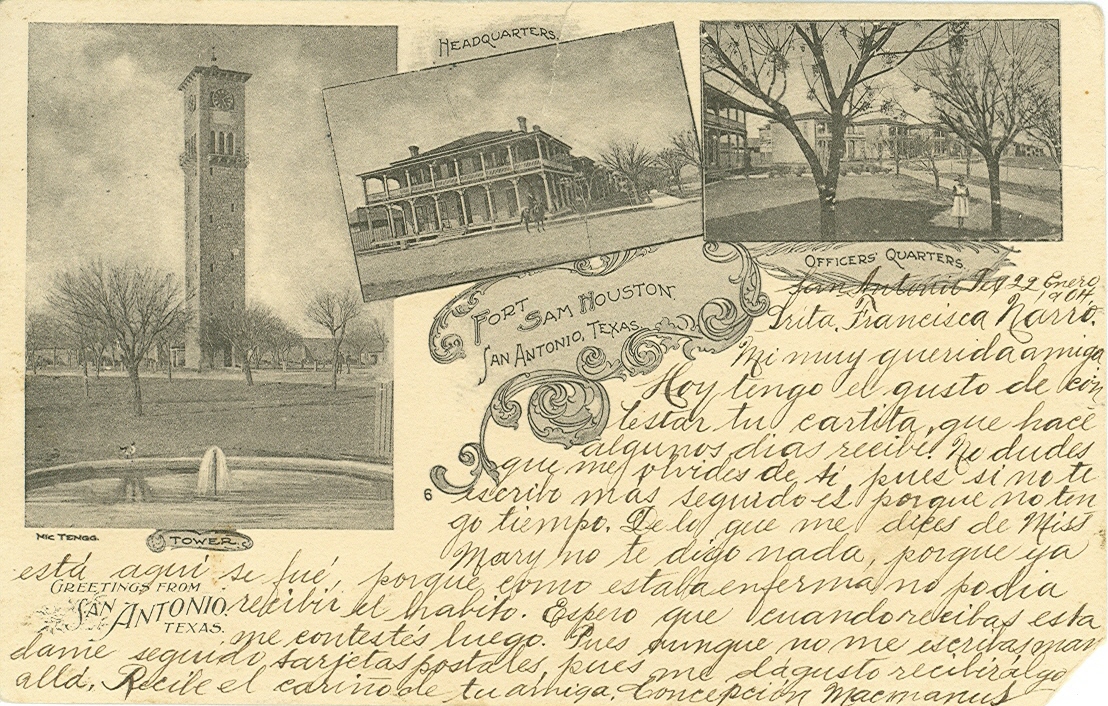 HEADQUARTERS.
OFFICERS' QUARTERS.
FORT SAM HOUSTON.
SAN ANTONIO, TEXAS.
6
NIC TENGG.
TOWER.
GREETINGS FROM
SAN ANTONIO,
TEXAS.
San Antonio Tex 22 Enero
1904.
Srita. Francisca Narro.
Mi muy querida amiga
Hoy tengo el gusto de con
testar tu cartita, que hace
algunos dias recibi. No dudes
que me olvides de ti, pues si no te
escribo mas seguido es porque no ten
go tiempo. De lo que me dices de Miss
Mary no te digo nada, porque ya
está aqui se fué, porque como estaba enferma, no podia
recibir el habito. Espero que cuando recibas esta
me contestes luego. Pues aunque no me escribas, man
dame seguido tarjetas postales, pues me da gusto recibir algo
allá. Recibe el cariño de tu amiga. Concepción Macmanus